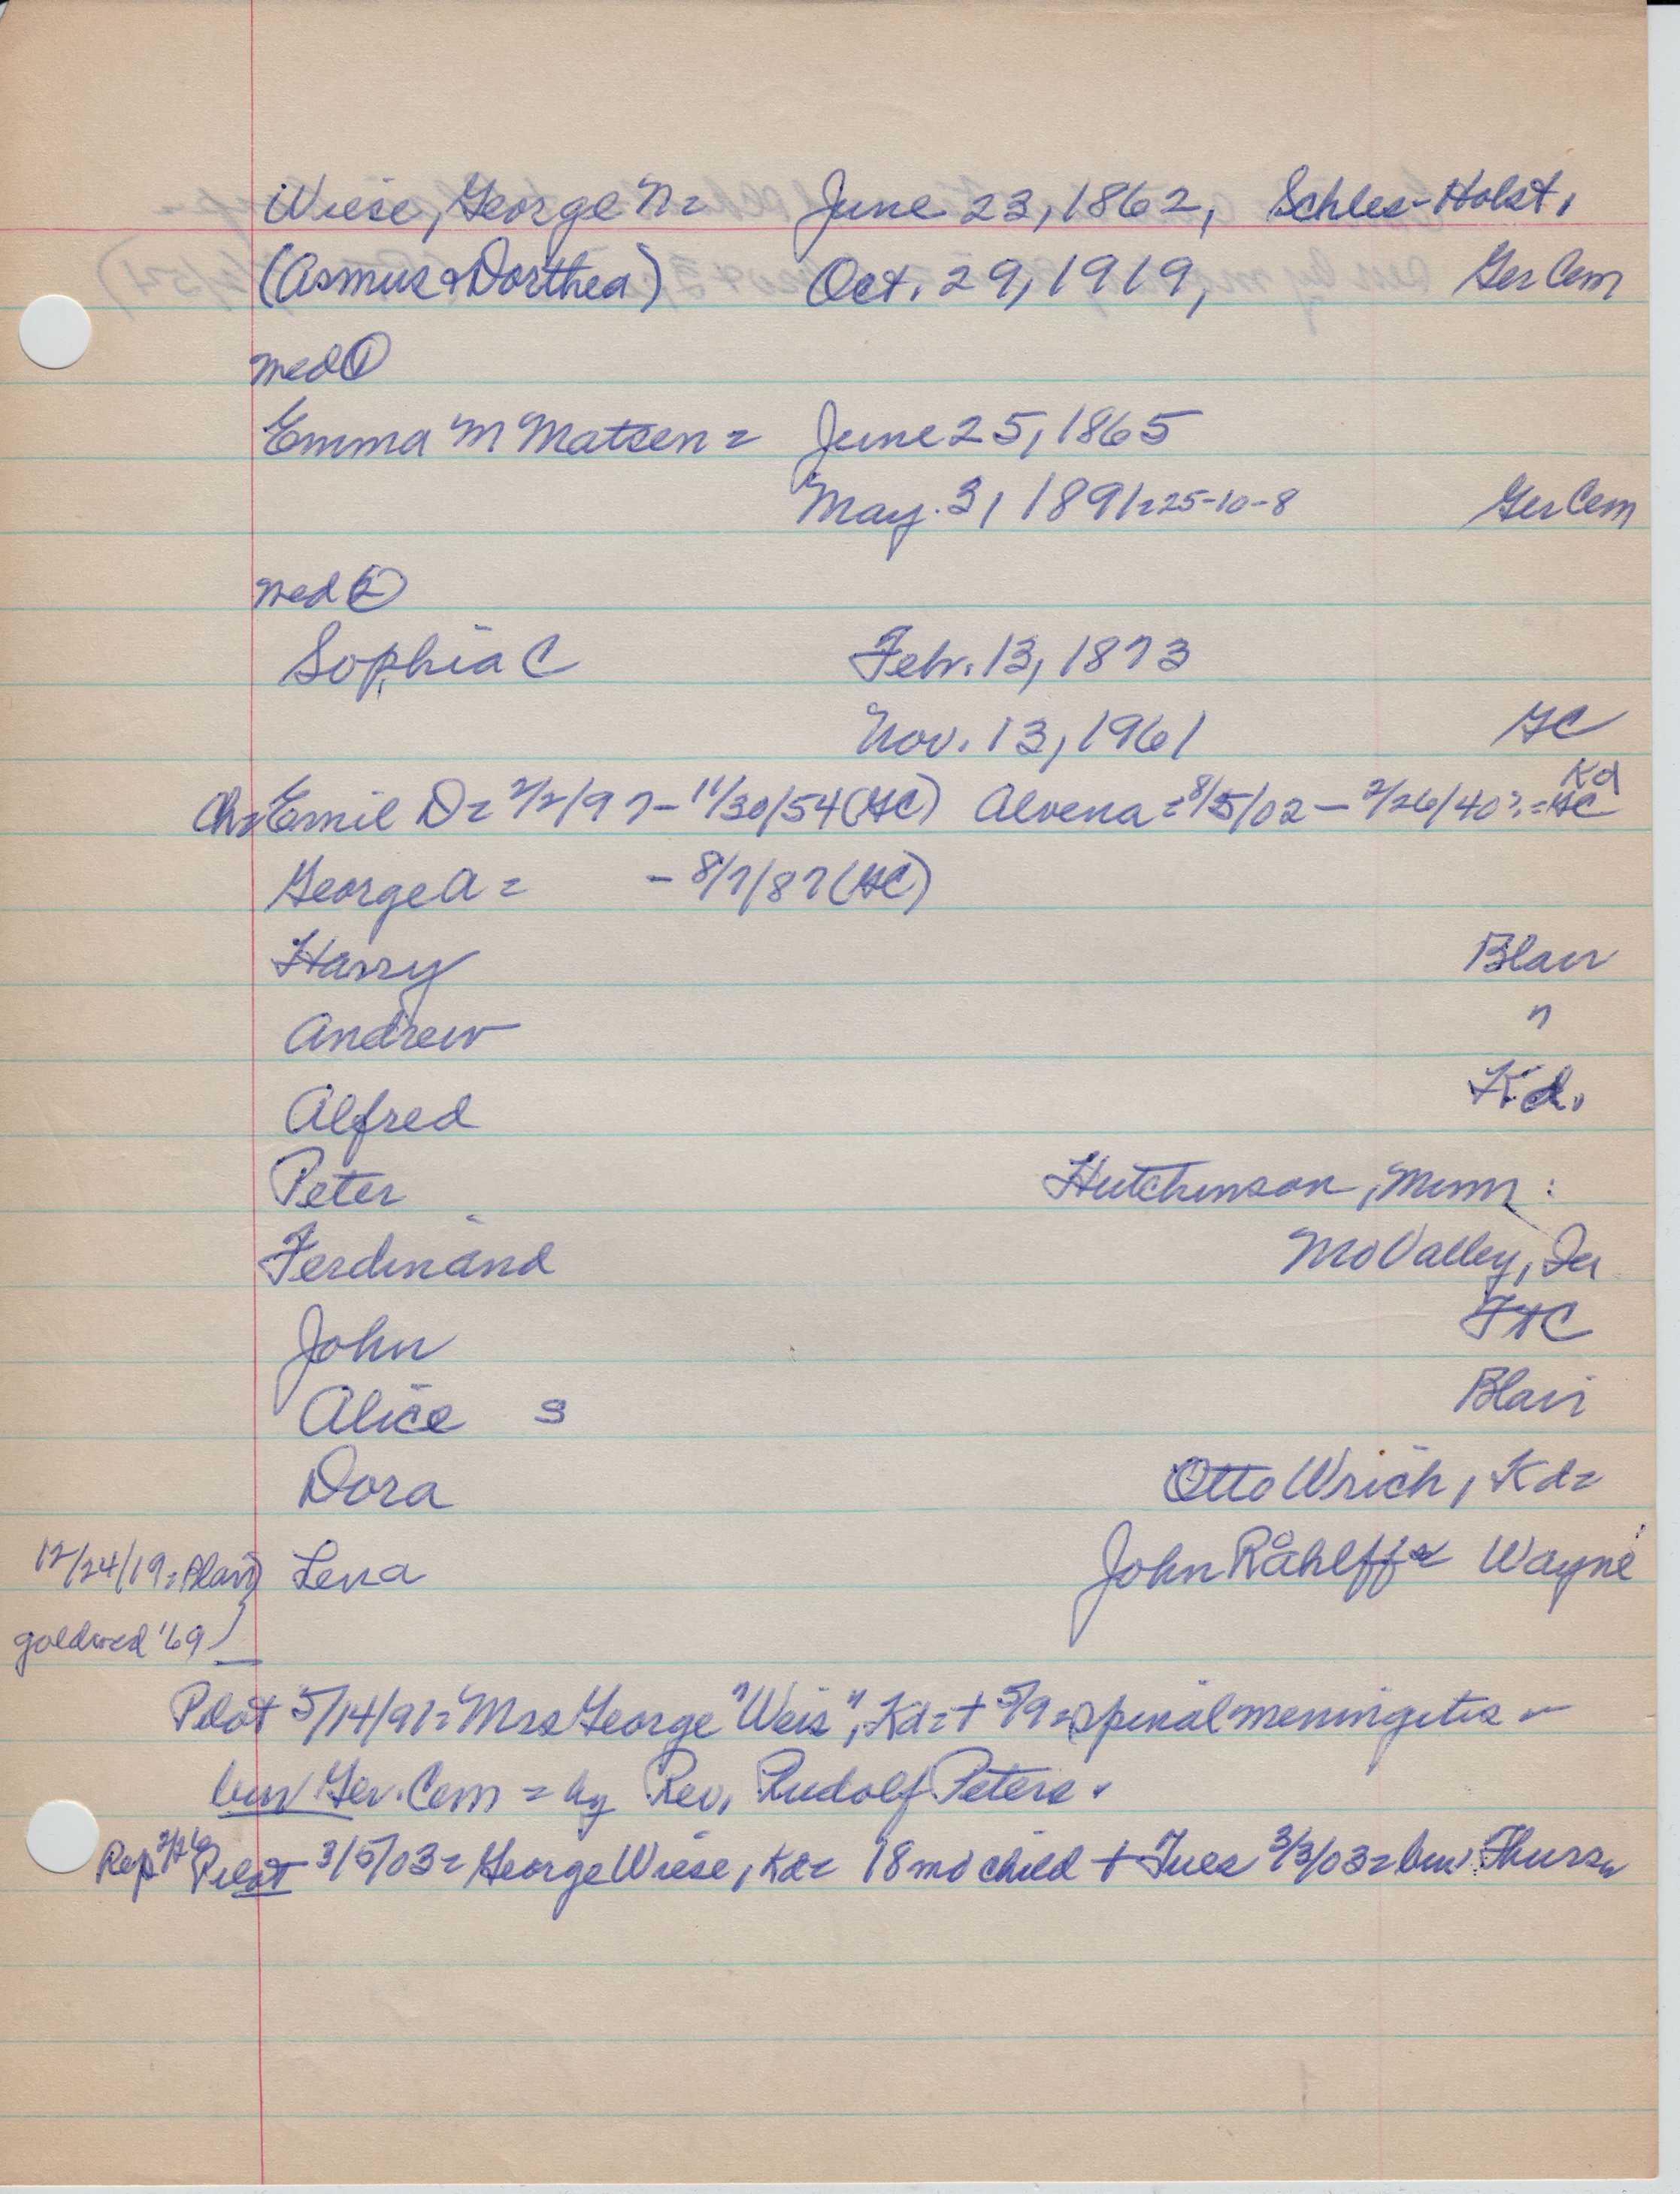 Wiese, George N = June 23, 1862, Schles-Holst,
(Asmus & Dorthea) Oct. 29, 1919, Ger Cem
med ①
Emma M Matsen = June 25, 1865
May. 3, 1891=25-10-8 Ger Cem
med ②
Sophia C Febr. 13, 1873
Nov. 13, 1961 GC
Kd
Ch= Emil D = 2/2/97 - 11/30/54 (GC) Alvena = 8/5/02 - 2/26/40 = GC
George A = - 8/7/87 (GC)
Harry Blair
Andrew "
Alfred Kd.
Peter Hutchinson, Minn :
Ferdinand Mo Valley, Ia
John FtC
Alice S Blair
Dora Otto Wrich, Kd=
12/24/19=Blair) Lena John Råhlff = Wayne
goldwed '69)
Pilot 5/14/91= Mrs George "Weis", Kd=+ 5/9=spinal meningitis -
bur Ger. Cem = by Rev. Rudolf Peters.
Rep Pilot 3/5/03= George Wiese, Kd= 18 mo child + Tues 3/3/03= bur Thurs